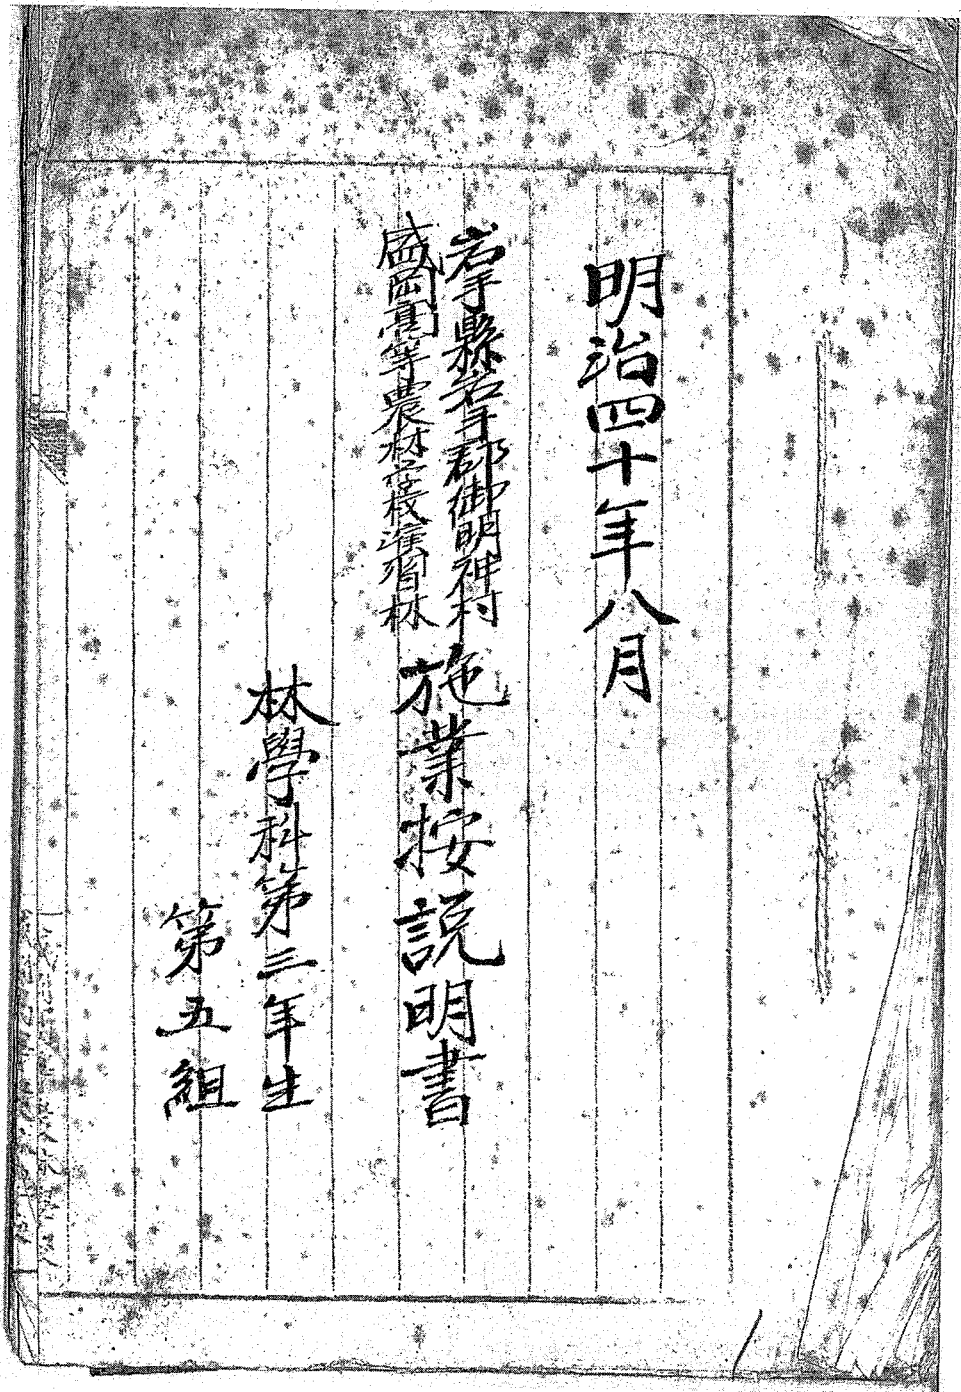 明治四十年八月
岩手縣岩手郡御明神村
盛岡高等農林学校演習林
施業按説明書
林學科第三年生
第五組